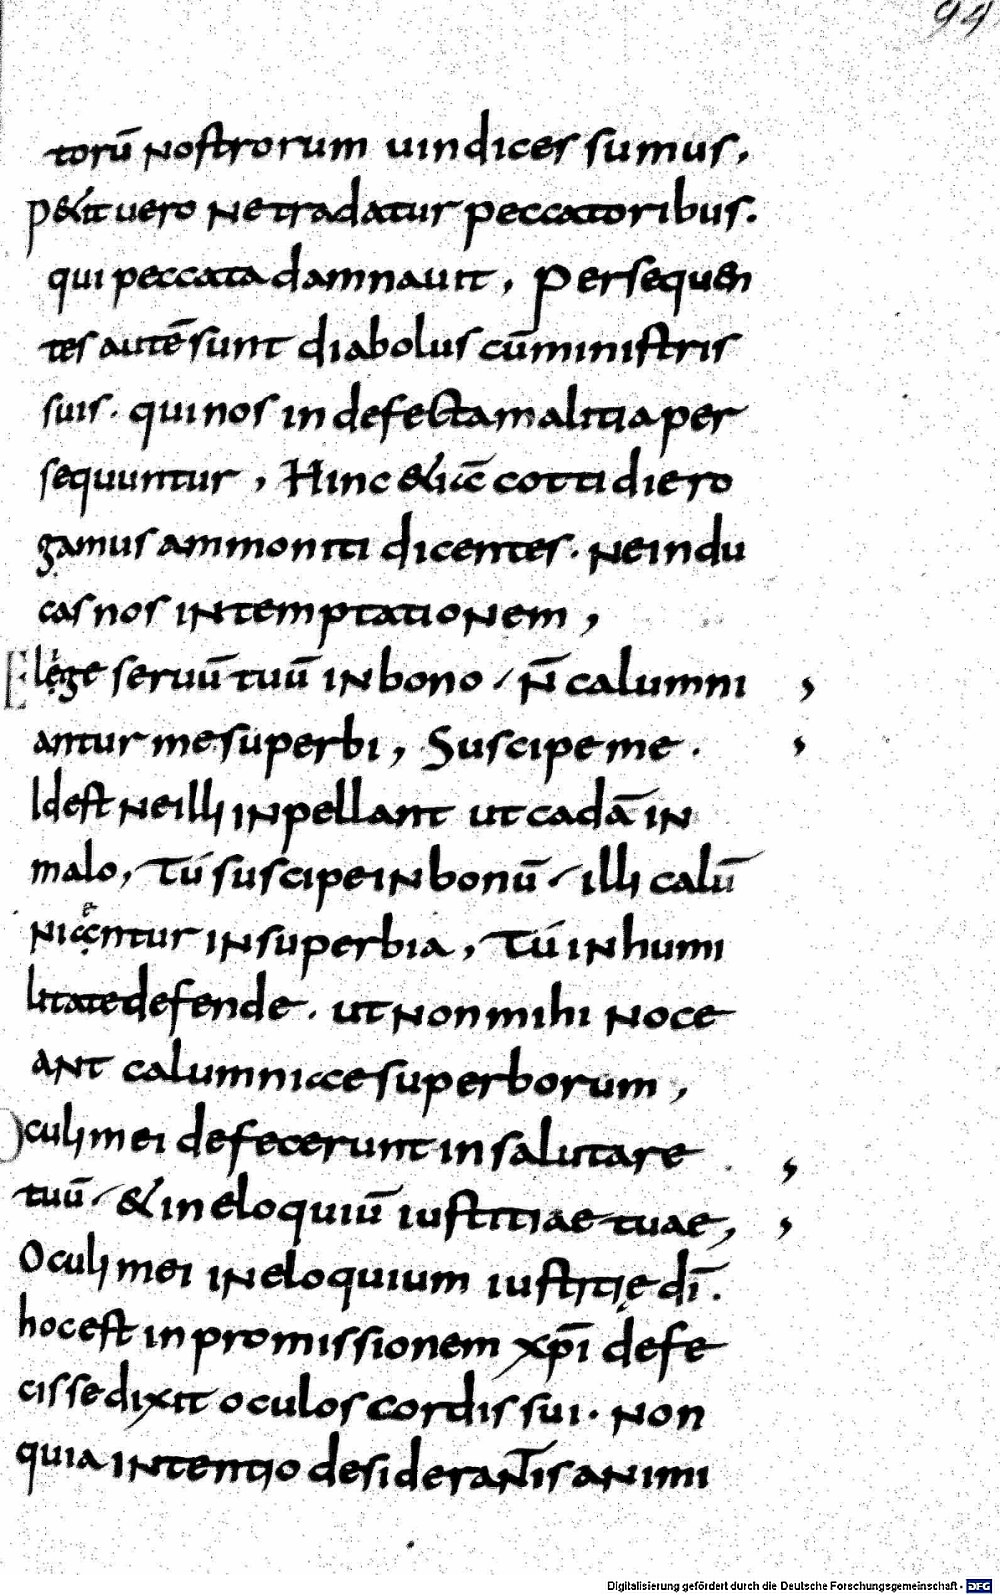 94
torū nostrorum uindices sumus,
P&iit uero ne tradatur peccatoribus.
qui peccata damnauit, Persequen
tes autē sunt diabolus cū ministris
suis. qui nos in defecta malitia per
sequuntur, Hinc & cottidie ro
gamus ammoniti dicentes. Ne indu
cas nos in temptationem,
Elege seruū tuū in bono / n̄ calumni
antur me superbi, Suscipe me.
Id est ne illi inpellant ut cadā in
malo, Tú suscipe in bonū / illi calū
nientur in superbia, Tú in humi
litate defende. ut non mihi noce
ant calumniae superborum,
Oculi mei defecerunt in salutare
tuū / & in eloquiū iustitiae tuae,
Oculi mei in eloquium iustitię dī.
hoc est in promissionem xp̄i defe
cisse dixit oculos cordis sui. Non
quia intentio desiderantis animi
Digitalisierung gefördert durch die Deutsche Forschungsgemeinschaft - DFG